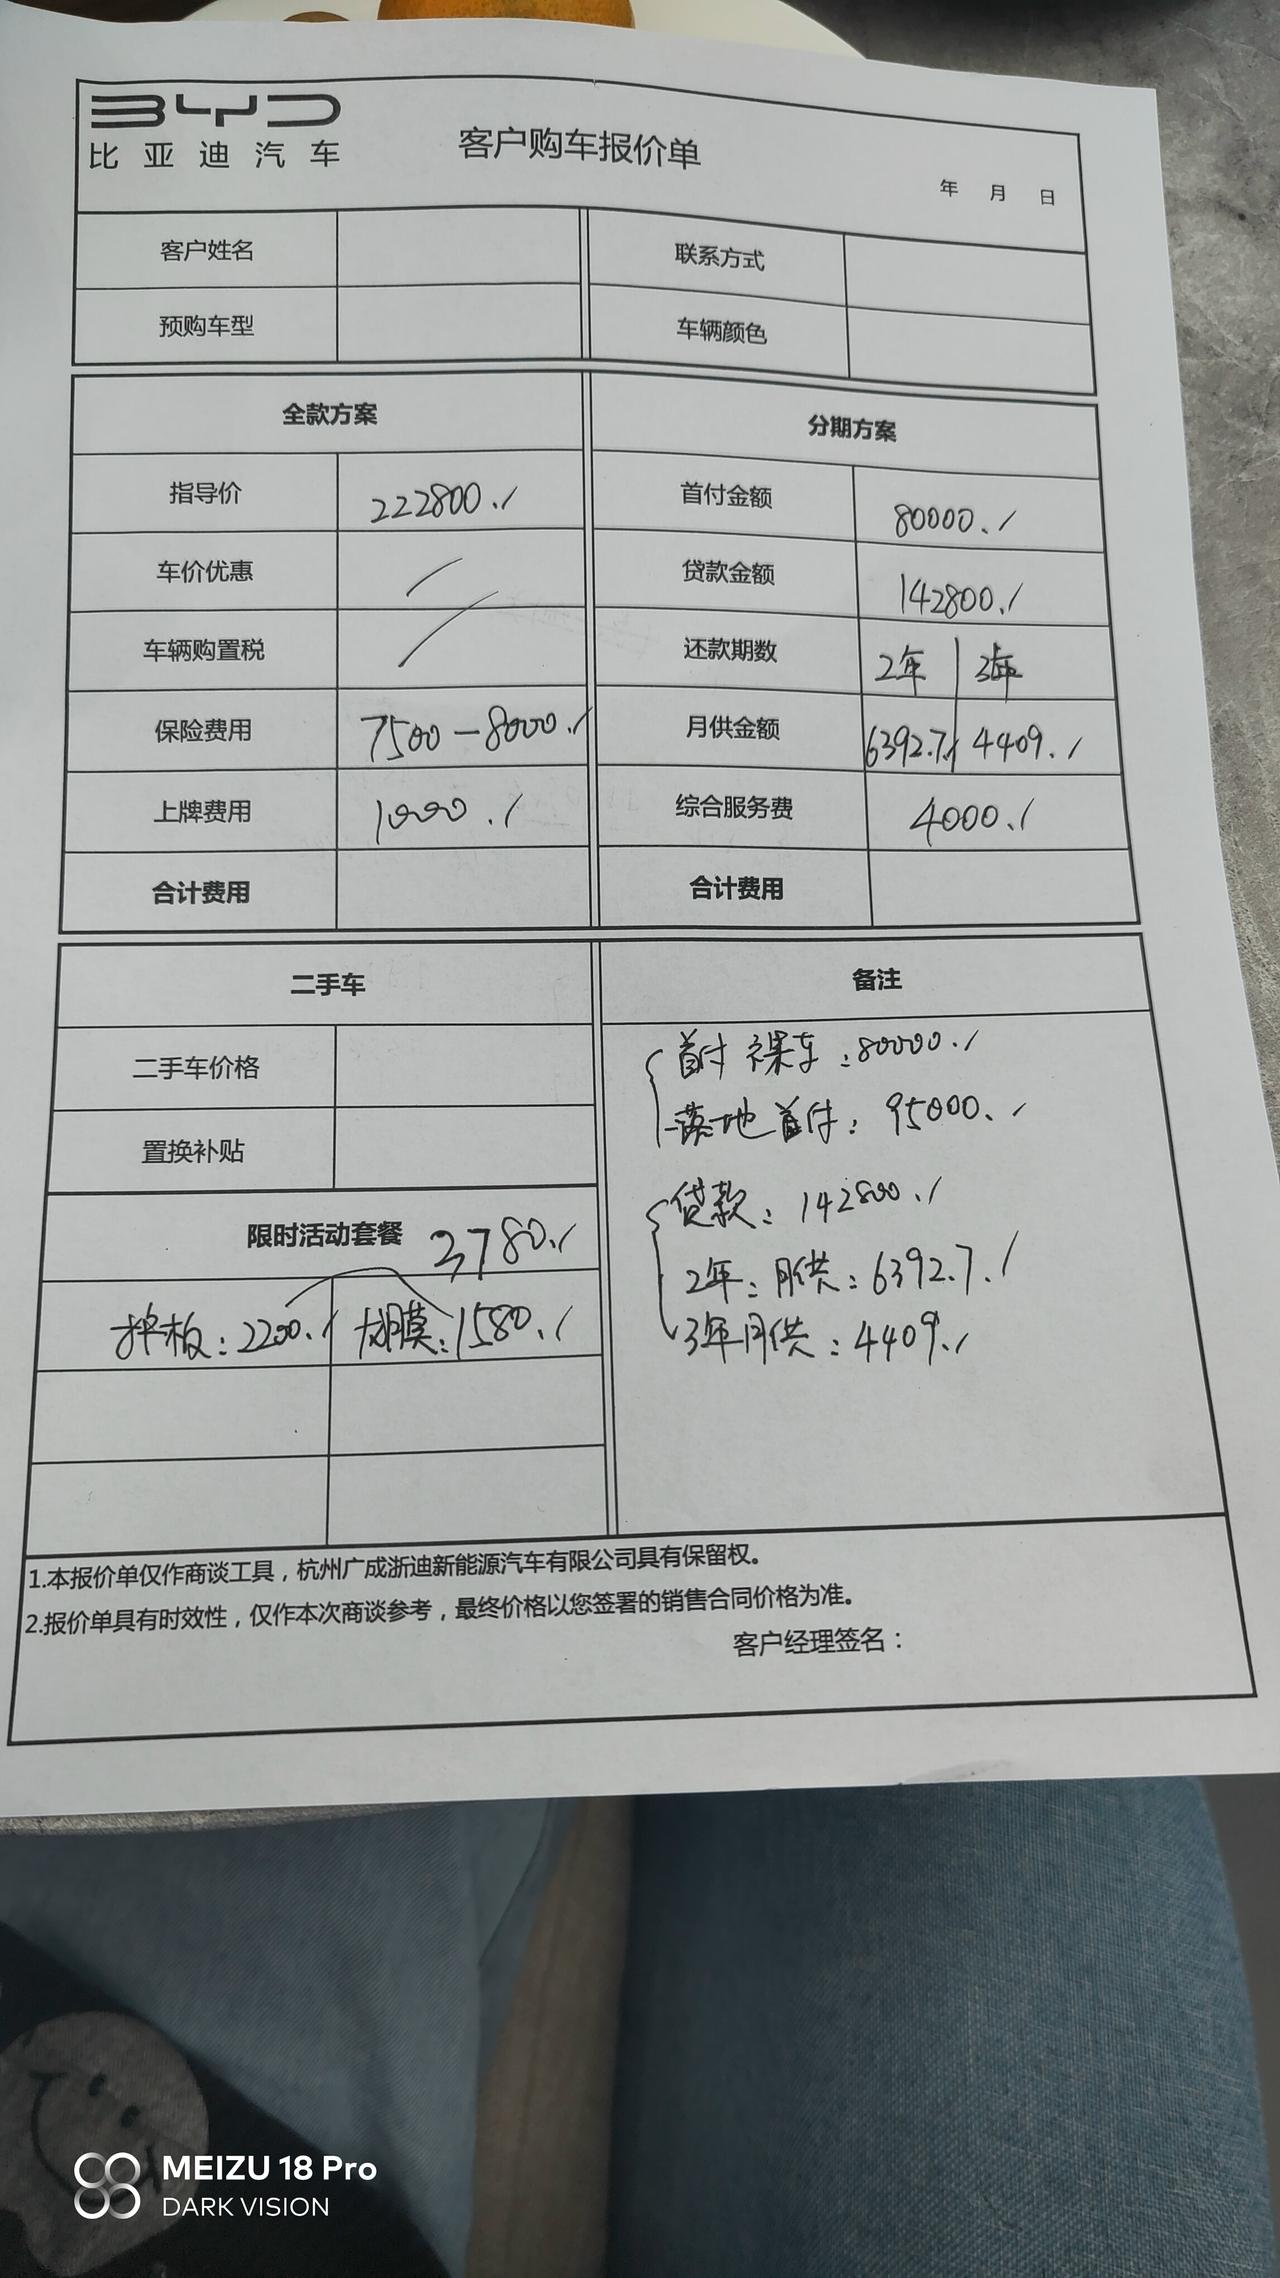 BYD
比亚迪汽车
客户购车报价单
年 月 日
客户姓名 联系方式
预购车型 车辆颜色
全款方案 分期方案
指导价 222800. 首付金额 80000.
车价优惠 贷款金额 142800.
车辆购置税 还款期数 2年 3年
保险费用 7500-8000. 月供金额 6392.7 4409.
上牌费用 1000. 综合服务费 4000.
合计费用 合计费用
二手车 备注
二手车价格
置换补贴
首付 裸车:80000.
落地首付:95000.
贷款:142800.
2年:月供:6392.7.
3年月供:4409.
限时活动套餐 3780.
板:2200. 膜:1580.
1.本报价单仅作商谈工具,杭州广成浙迪新能源汽车有限公司具有保留权。
2.报价单具有时效性,仅作本次商谈参考,最终价格以您签署的销售合同价格为准。
客户经理签名:
MEIZU 18 Pro
DARK VISION